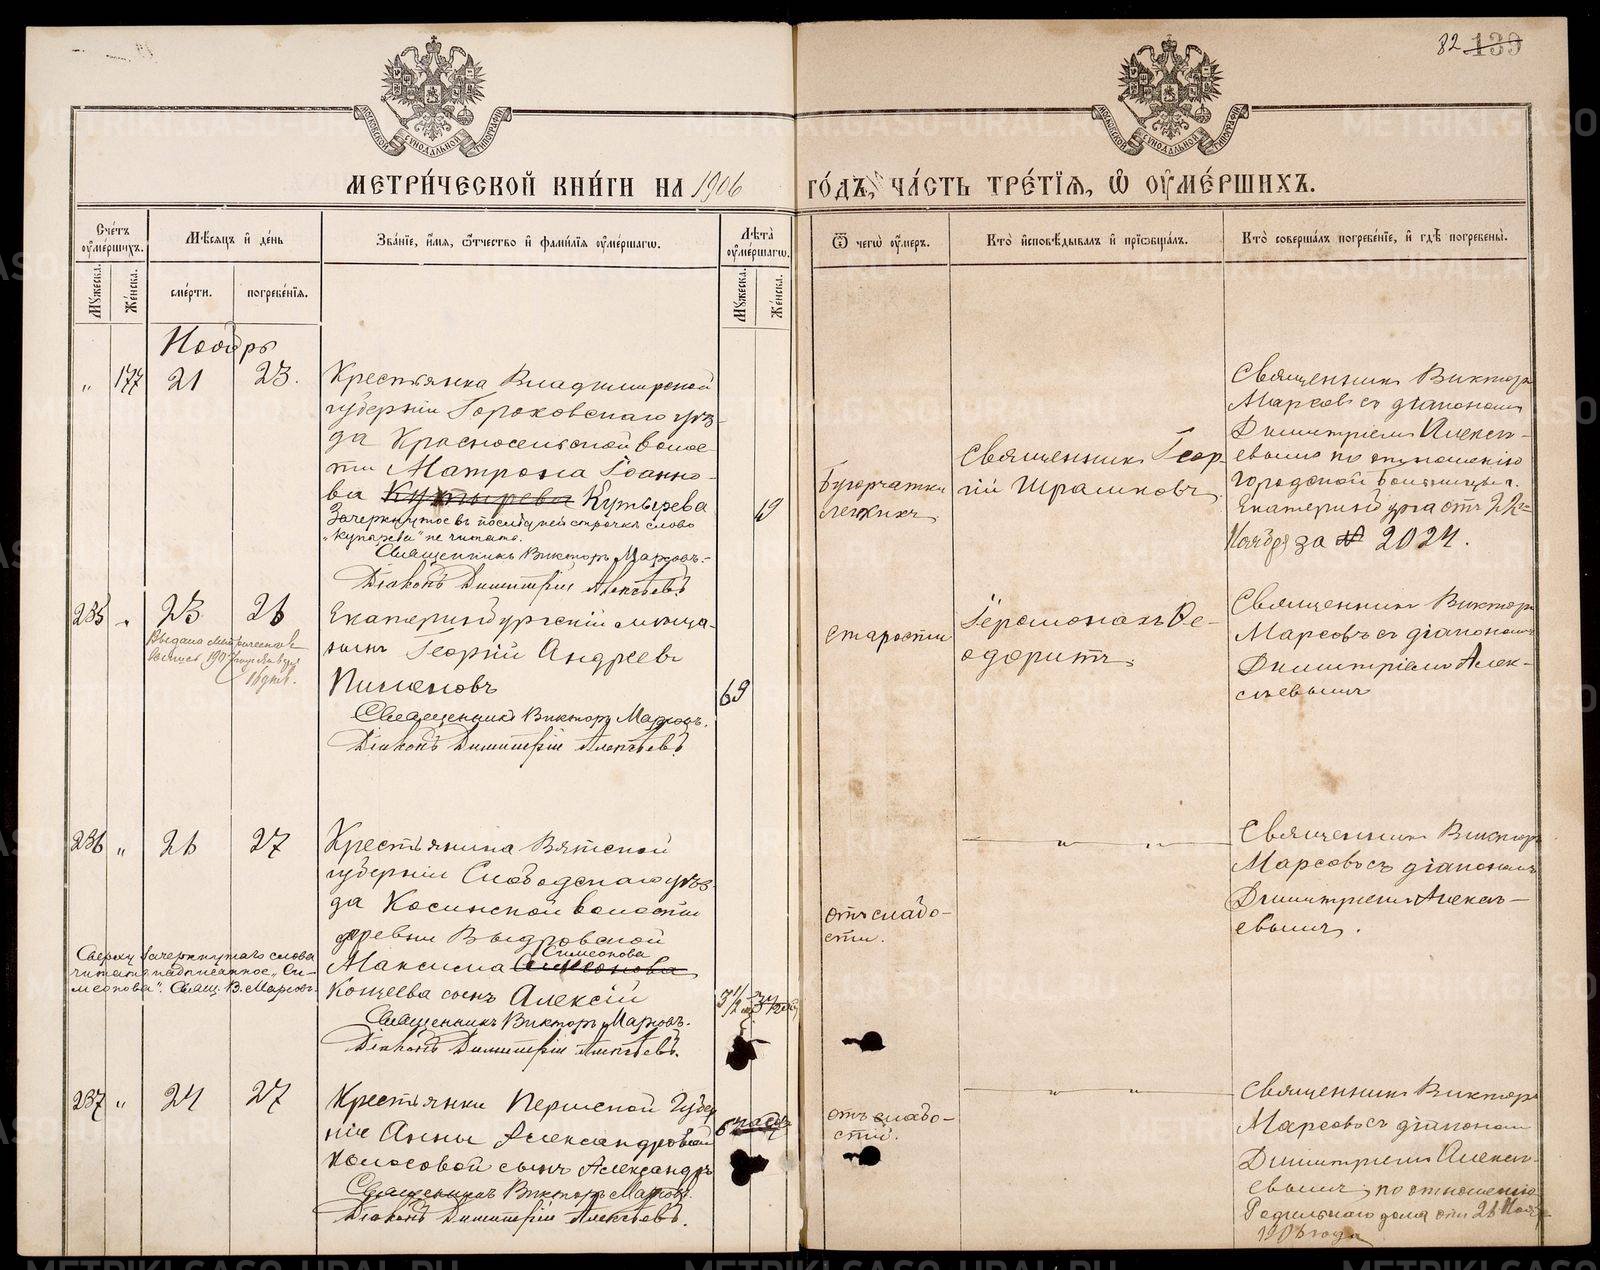 82 139
МЕТРИ́ЧЕСКОЙ КНИ́ГИ НА 1906 ГО́ДЪ, ЧА́СТЬ ТРЕ́ТІЯ, Ѽ ОУМЕ́РШИХЪ.
Сче́тъ оумершихъ.
Мужеска. Же́нска.
Мѣсяцъ и де́нь
сме́рти. погребе́нія.
Зва́ніе, и́мя, ѻтчество и фами́лія оуме́ршагѡ.
Лѣта̀ оуме́ршагѡ.
Мужеска. Же́нска.
Ѿ чегѡ̀ оу́меръ.
Кто̀ исповѣ́дывалъ и пріѡбща́лъ.
Кто̀ соверша́лъ погребе́ніе, и гдѣ̀ погребены̀.
Ноябрь
" 177 21 23.
Крестьянка Владимирской
губерніи Гороховскаго уѣз-
да Красносельской волос-
ти Матрона Іоанно-
ва Кутырева
Зачеркнутое въ последней строчкѣ слово
не читать.
Священникъ Викторъ Марсовъ.
Діаконъ Димитрій Алексѣевъ.
19
Бугорчатки
легкихъ
Священникъ Геор-
гій Шрамковъ
Священникъ Викторъ
Марсовъ съ діакономъ
Димитріемъ Алексѣ-
евымъ по отношенію
Городской больницы г.
Екатеринбурга отъ 22го
Ноября за № 2024.
235 " 23 26
Выдана метрическая
выпись 1907
16 дня.
Екатеринбургскій мѣща-
нинъ Георгій Андреевъ
Пименовъ
Священникъ Викторъ Марсовъ.
Діаконъ Димитрій Алексѣевъ.
69
старости
Іеромонахъ Ѳе-
одоритъ
Священникъ Викторъ
Марсовъ съ діакономъ
Димитріемъ Алек-
сѣевымъ
236 " 26 27
Крестьянина Вятской
губерніи Слободскаго уѣз-
да Косинской волости
деревни Выдровской
Симеонова
Максима
Кощеева сынъ Алексій
Священникъ Викторъ Марсовъ.
Діаконъ Димитрій Алексѣевъ.
Сверху зачеркнутаго слова
читать надписанное „Си-
меонова". Свящ. В. Марсовъ.
3 1/2
отъ слабо-
сти.
" "
Священникъ Викторъ
Марсовъ съ діакономъ
Димитріемъ Алексѣ-
евымъ.
237 " 24 27
Крестьянки Пермской губер
ніи Анны Александровой
Колосовой сынъ Александръ
Священникъ Викторъ Марсовъ.
Діаконъ Димитрій Алексѣевъ.
6 часовъ
отъ слабо-
стій.
" "
Священникъ Викторъ
Марсовъ съ діакономъ
Димитріемъ Алексѣ-
евымъ, по отношенію
Родильнаго дома отъ 26 Нояб.
1906 года
METRIKI.GASO-URAL.RU